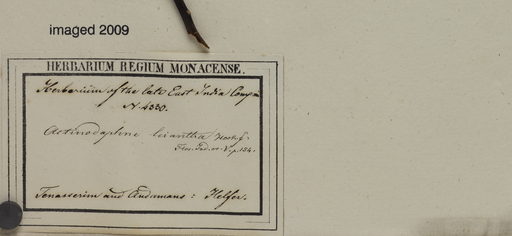 imaged 2009
HERBARIUM REGIUM MONACENSE.
Herbarium of the late East India Comp
N. 4330.
Actinodaphne leiantha Hook. f.
Flor. Ind. or. V. p. 154.
Tenasserim and Andamans : Helfer.